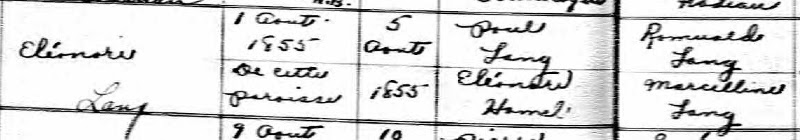 Eléonore Lang
1 Aout 1855
De cette paroisse
5 Aout 1855
Paul Lang
Eléonore Hamel
Romuald Lang
Marcelline Lang
9 Aout
10